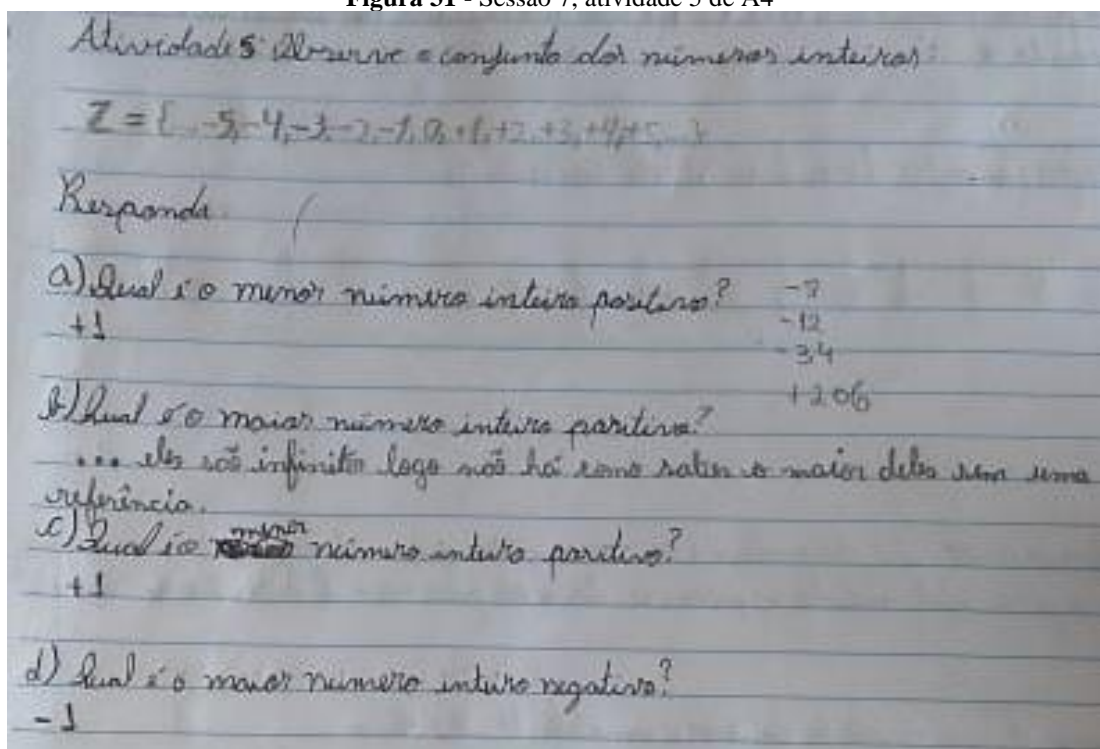 Figura 31 - Sessão 7, atividade 5 de A4
Atividade 5: Observe o conjunto dos números inteiros:
Z = {...-5,-4,-3,-2,-1,0,+1,+2,+3,+4,+5,...}
Responda
a) Qual é o menor número inteiro positivo? -7
+1 -12
-34
+206
b) Qual é o maior número inteiro positivo?
... eles são infinito logo não há como saber o maior deles sem uma
referência.
c) Qual é o menor número inteiro positivo?
+1
d) Qual é o maior número inteiro negativo?
-1